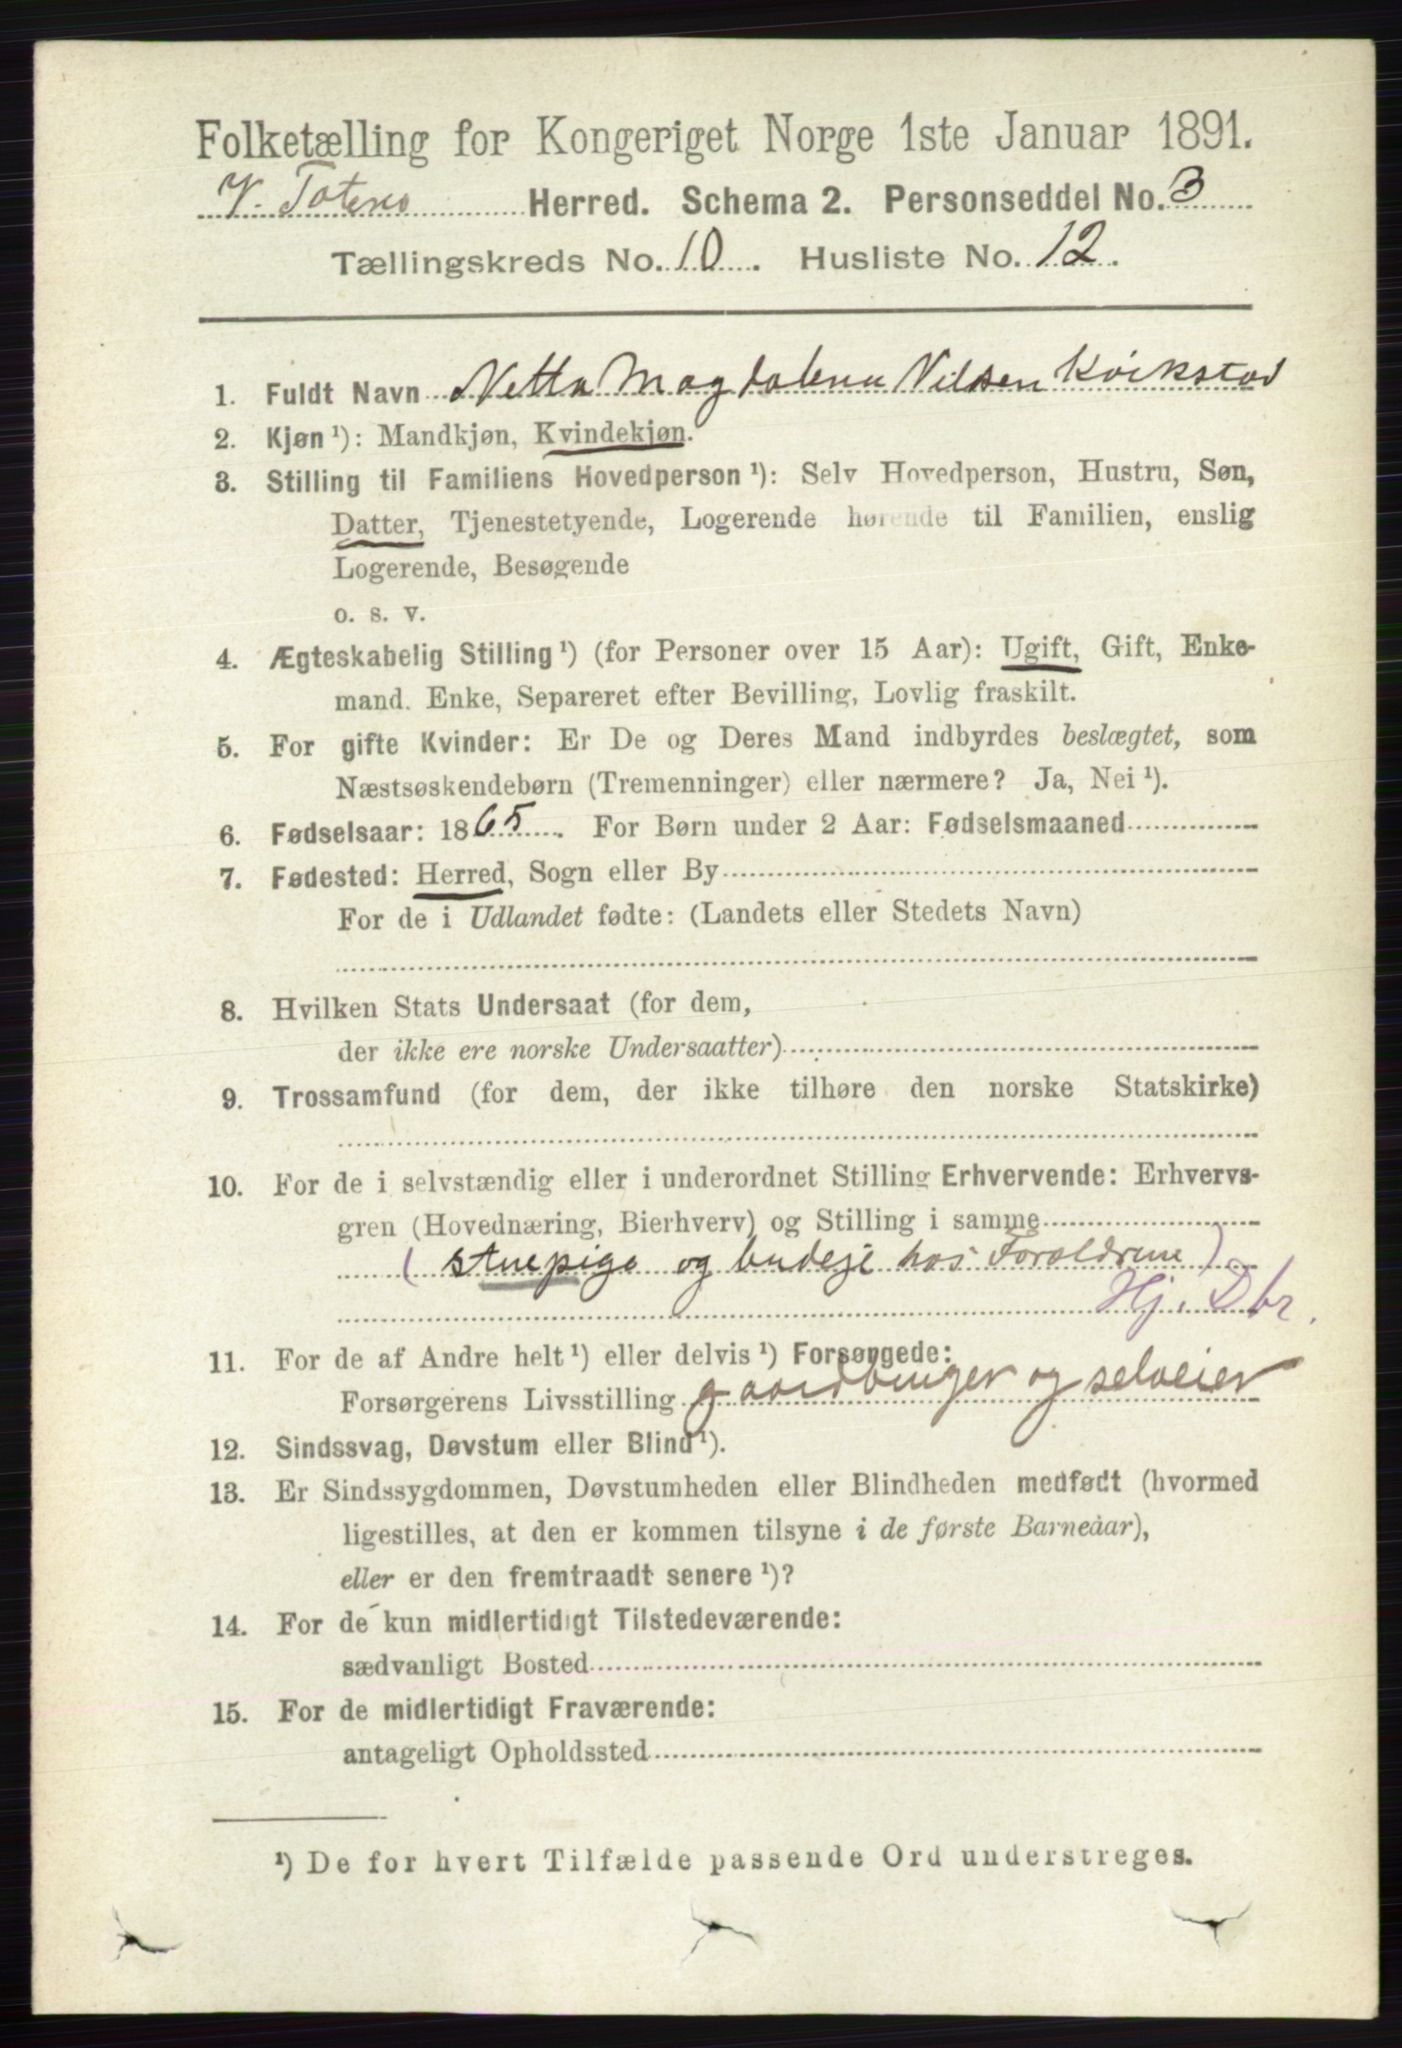 Folketælling for Kongeriget Norge 1ste Januar 1891.
V. Totens Herred. Schema 2. Personseddel No. 3
Tællingskreds No. 10. Husliste No. 12.
1. Fuldt Navn Netta Magdalena Nilsen Kvikstad
2. Kjøn ¹): Mandkjøn, Kvindekjøn.
3. Stilling til Familiens Hovedperson ¹): Selv Hovedperson, Hustru, Søn,
Datter, Tjenestetyende, Logerende hørende til Familien, enslig
Logerende, Besøgende
o. s. v.
4. Ægteskabelig Stilling ¹) (for Personer over 15 Aar): Ugift, Gift, Enke-
mand. Enke, Separeret efter Bevilling, Lovlig fraskilt.
5. For gifte Kvinder: Er De og Deres Mand indbyrdes beslægtet, som
Næstsøskendebørn (Tremenninger) eller nærmere? Ja, Nei ¹).
6. Fødselsaar: 1865. For Børn under 2 Aar: Fødselsmaaned
7. Fødested: Herred, Sogn eller By
For de i Udlandet fødte: (Landets eller Stedets Navn)
8. Hvilken Stats Undersaat (for dem,
der ikke ere norske Undersaatter)
9. Trossamfund (for dem, der ikke tilhøre den norske Statskirke)
10. For de i selvstændig eller i underordnet Stilling Erhvervende: Erhvervs-
gren (Hovednæring, Bierhverv) og Stilling i samme
(stuepige og budeje hos Foraldrene)
Hj. Dtr.
11. For de af Andre helt ¹) eller delvis ¹) Forsørgede:
Forsørgerens Livsstilling gaardbruger og selveier
12. Sindssvag, Døvstum eller Blind ¹).
13. Er Sindssygdommen, Døvstumheden eller Blindheden medfødt (hvormed
ligestilles, at den er kommen tilsyne i de første Barneaar),
eller er den fremtraadt senere ¹)?
14. For de kun midlertidigt Tilstedeværende:
sædvanligt Bosted
15. For de midlertidigt Fraværende:
antageligt Opholdssted
¹) De for hvert Tilfælde passende Ord understreges.